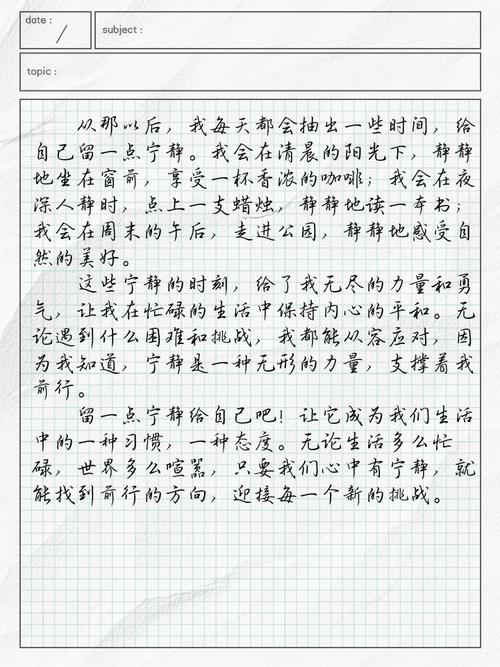 date :
subject :
topic :
从那以后，我每天都会抽出一些时间，给
自己留一点宁静。我会在清晨的阳光下，静静
地坐在窗前，享受一杯香浓的咖啡；我会在夜
深人静时，点上一支蜡烛，静静地读一本书；
我会在周末的午后，走进公园，静静地感受自
然的美好。
这些宁静的时刻，给了我无尽的力量和勇
气，让我在忙碌的生活中保持内心的平和。无
论遇到什么困难和挑战，我都能从容应对，因
为我知道，宁静是一种无形的力量，支撑着我
前行。
留一点宁静给自己吧！让它成为我们生活
中的一种习惯，一种态度。无论生活多么忙
碌，世界多么喧嚣，只要我们心中有宁静，就
能找到前行的方向，迎接每一个新的挑战。